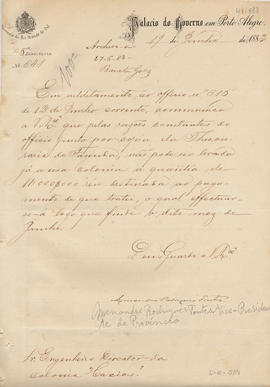 Palacio do Governo em Porto Alegre,
19 de Junho de 1883
Archive-se
27-6-83
Barata Góes
Nº 641
Em additamento ao officio nº 515
de 12 de Junho corrente, communico
a Vmce que pelas razões constantes do
officio junto por copia da Thesou-
raria de Fazenda, não pode ser enviada
já a essa colonia a quantia de
10:000$000 réis destinada ao paga-
mento de que tratei, o qual effectuar-
se-á logo que finde o dito mez de
Junho.
Deus Guarde a Vmce
Menandro Rodrigues Fontes Vice-Preside
te da Provincia
Sr. Engenheiro Director da
colonia "Caxias"